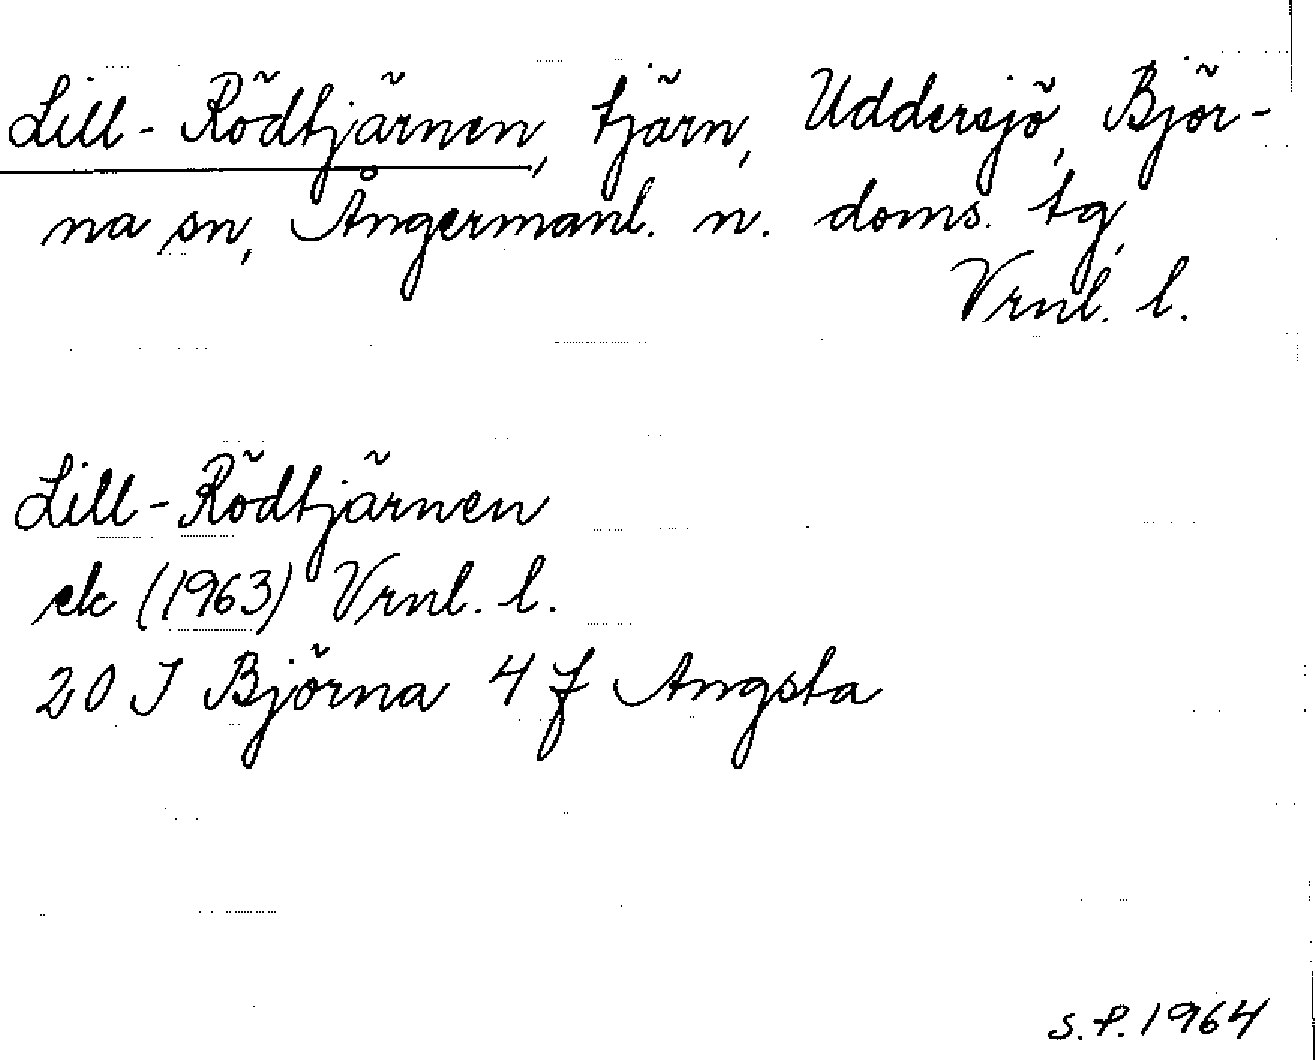 Lill-Rödtjärnen, tjärn, Uddersjö, Björ-
na sn, Ångermanl. n. doms. tg,
Vrnl. l.
Lill-Rödtjärnen
ek (1963) Vrnl. l.
20 I Björna 4 f Angsta
S.P. 1964